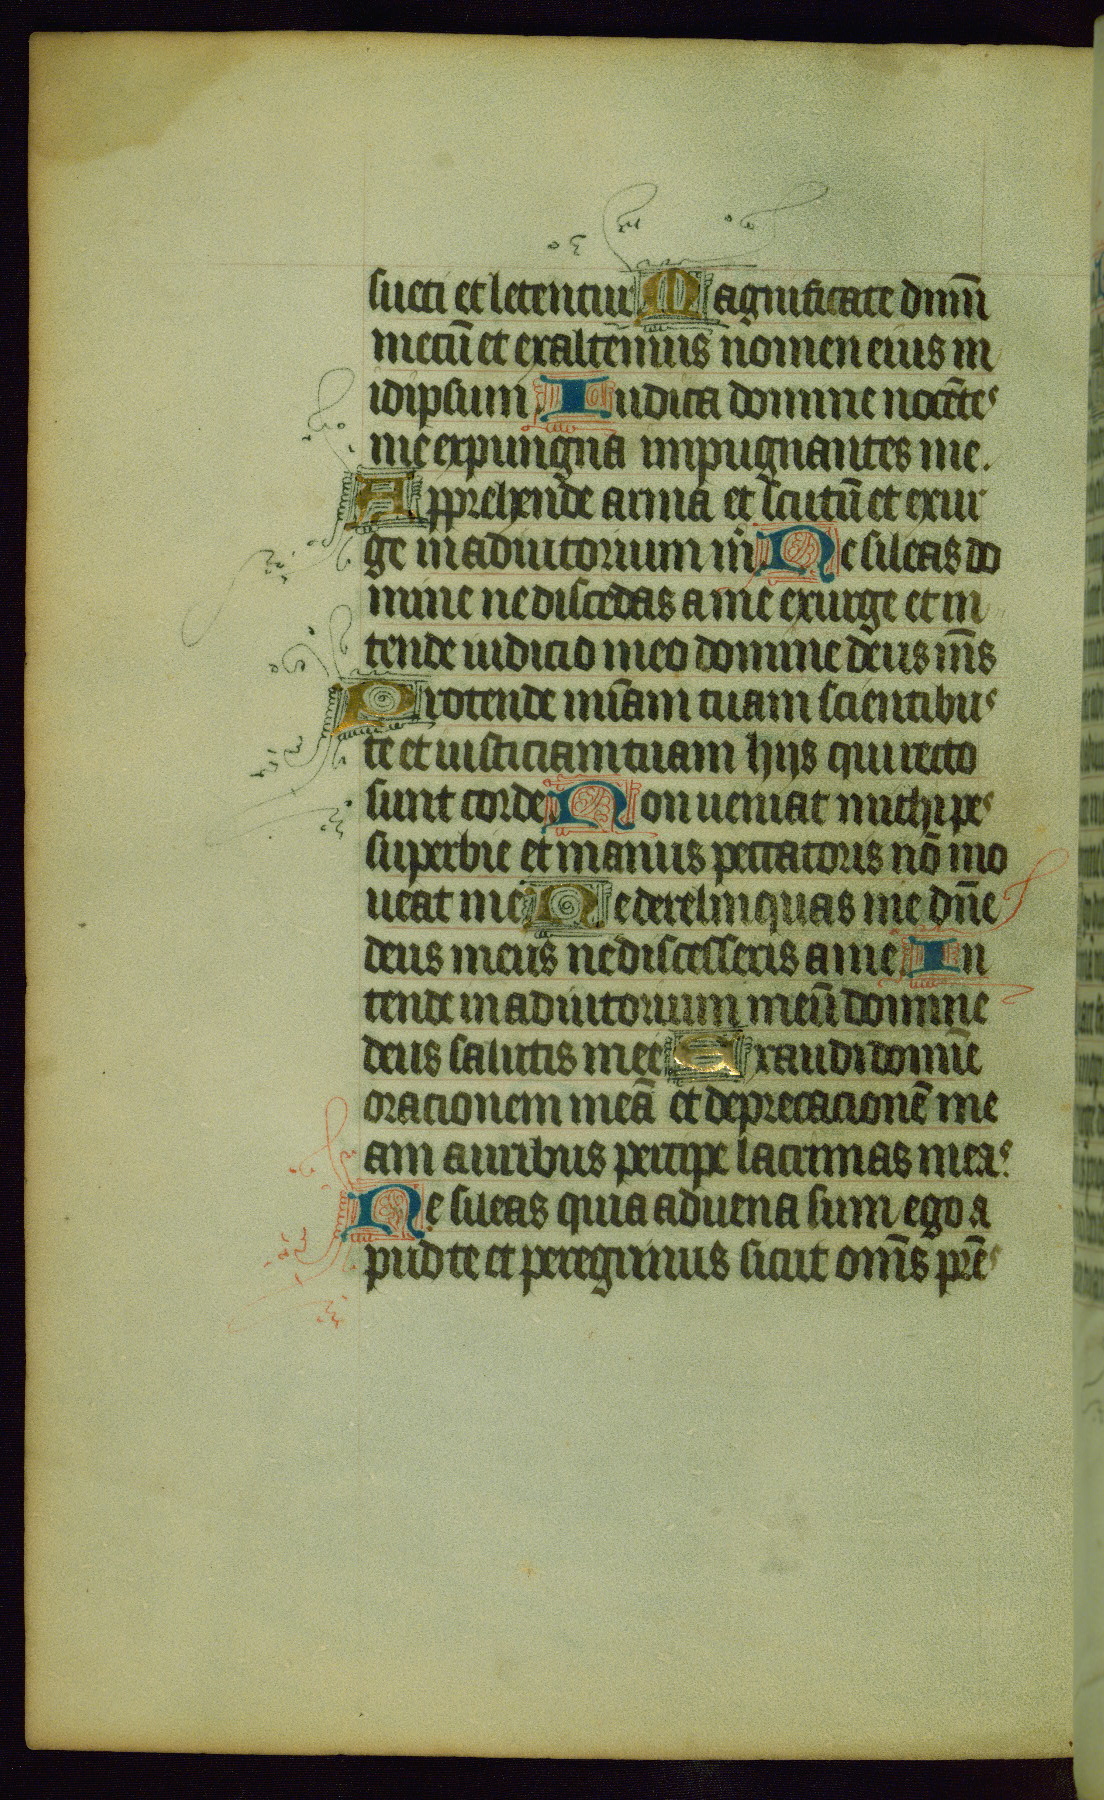 sueti et letentur Magnificate dnm̄
mecū et exaltemus nomen eius in
idipsum Iudica domine nocētes
me expungna impugnantes me.
Apprehende arma et scutū et exur
ge in adiutorium m̄ Ne sileas do
mine ne discedas a me exurge et in
tende iudicio meo domine deus m̄s
Protende mīam tuam scientibus
te et iusticiam tuam hijs qui recto
sunt corde Non ueniat michi pes
superbie et manus peccatoris nō mo
ueat me Ne derelinquas me dn̄e
deus meus ne discesseris a me In
tende in adiutorium meū domine
deus salutis mee Exaudi domīe
oracionem meā et deprecacionē me
am auribus percipe lacrimas meas
Ne sileas quia aduena sum ego a
pud te et peregrinus sicut om̄s pr̄es